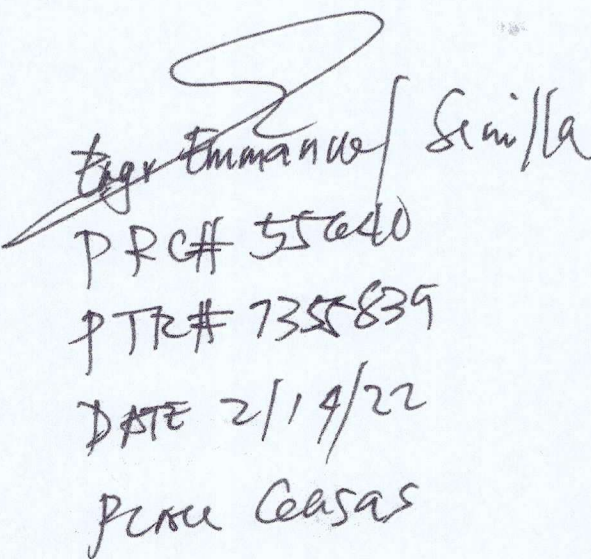 Engr Emmanuel Semilla
PRC# 55640
PTR# 7355839
DATE 2/14/22
PLACE